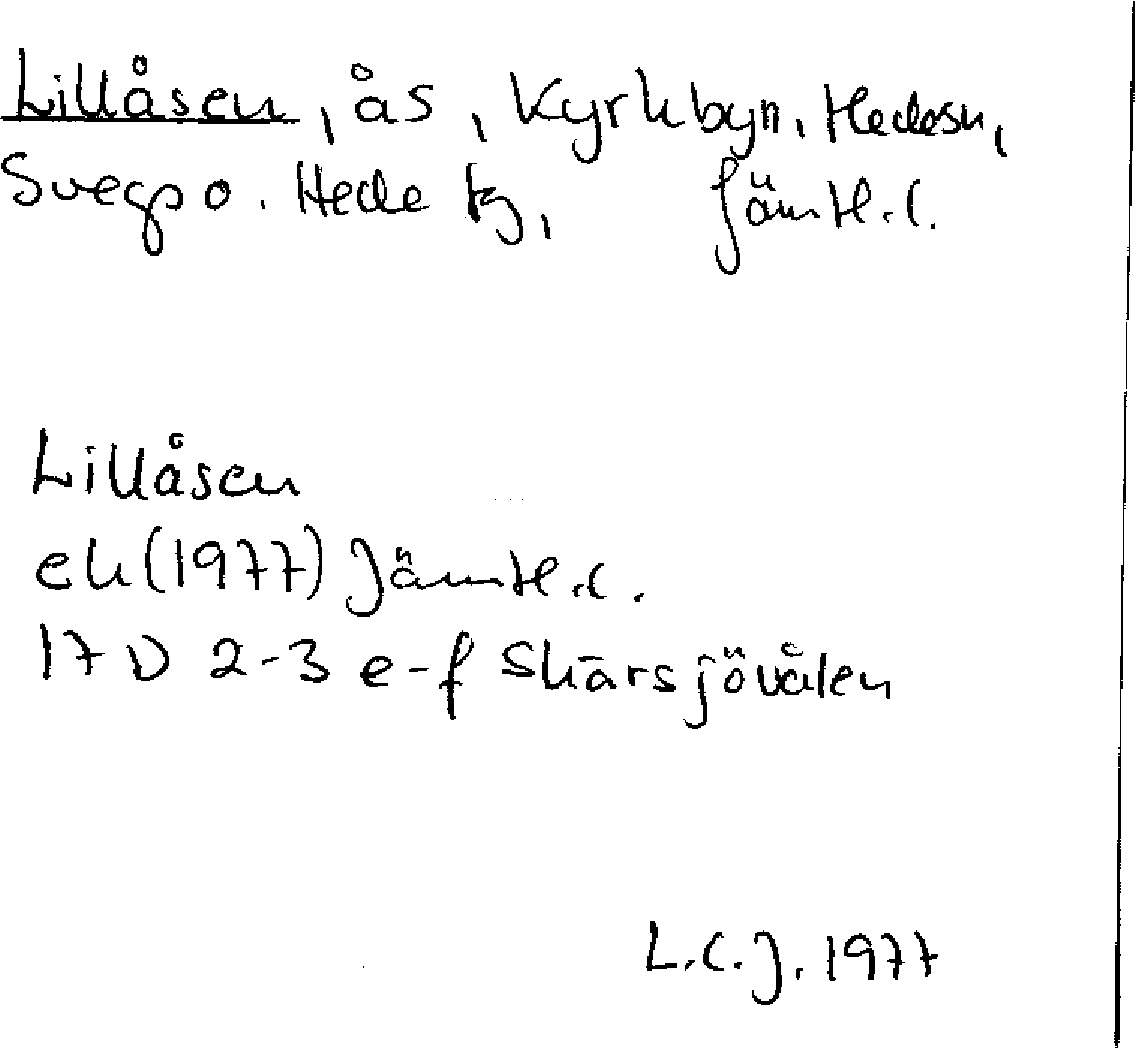 Lillåsen, ås, Kyrkbyn, Hedesn,
Svegs o. Hede tg, Jämtl.l.
Lillåsen
ek(1977) Jämtl.l.
17 D 2-3 e-f Skärsjövålen
L.C.J. 1977